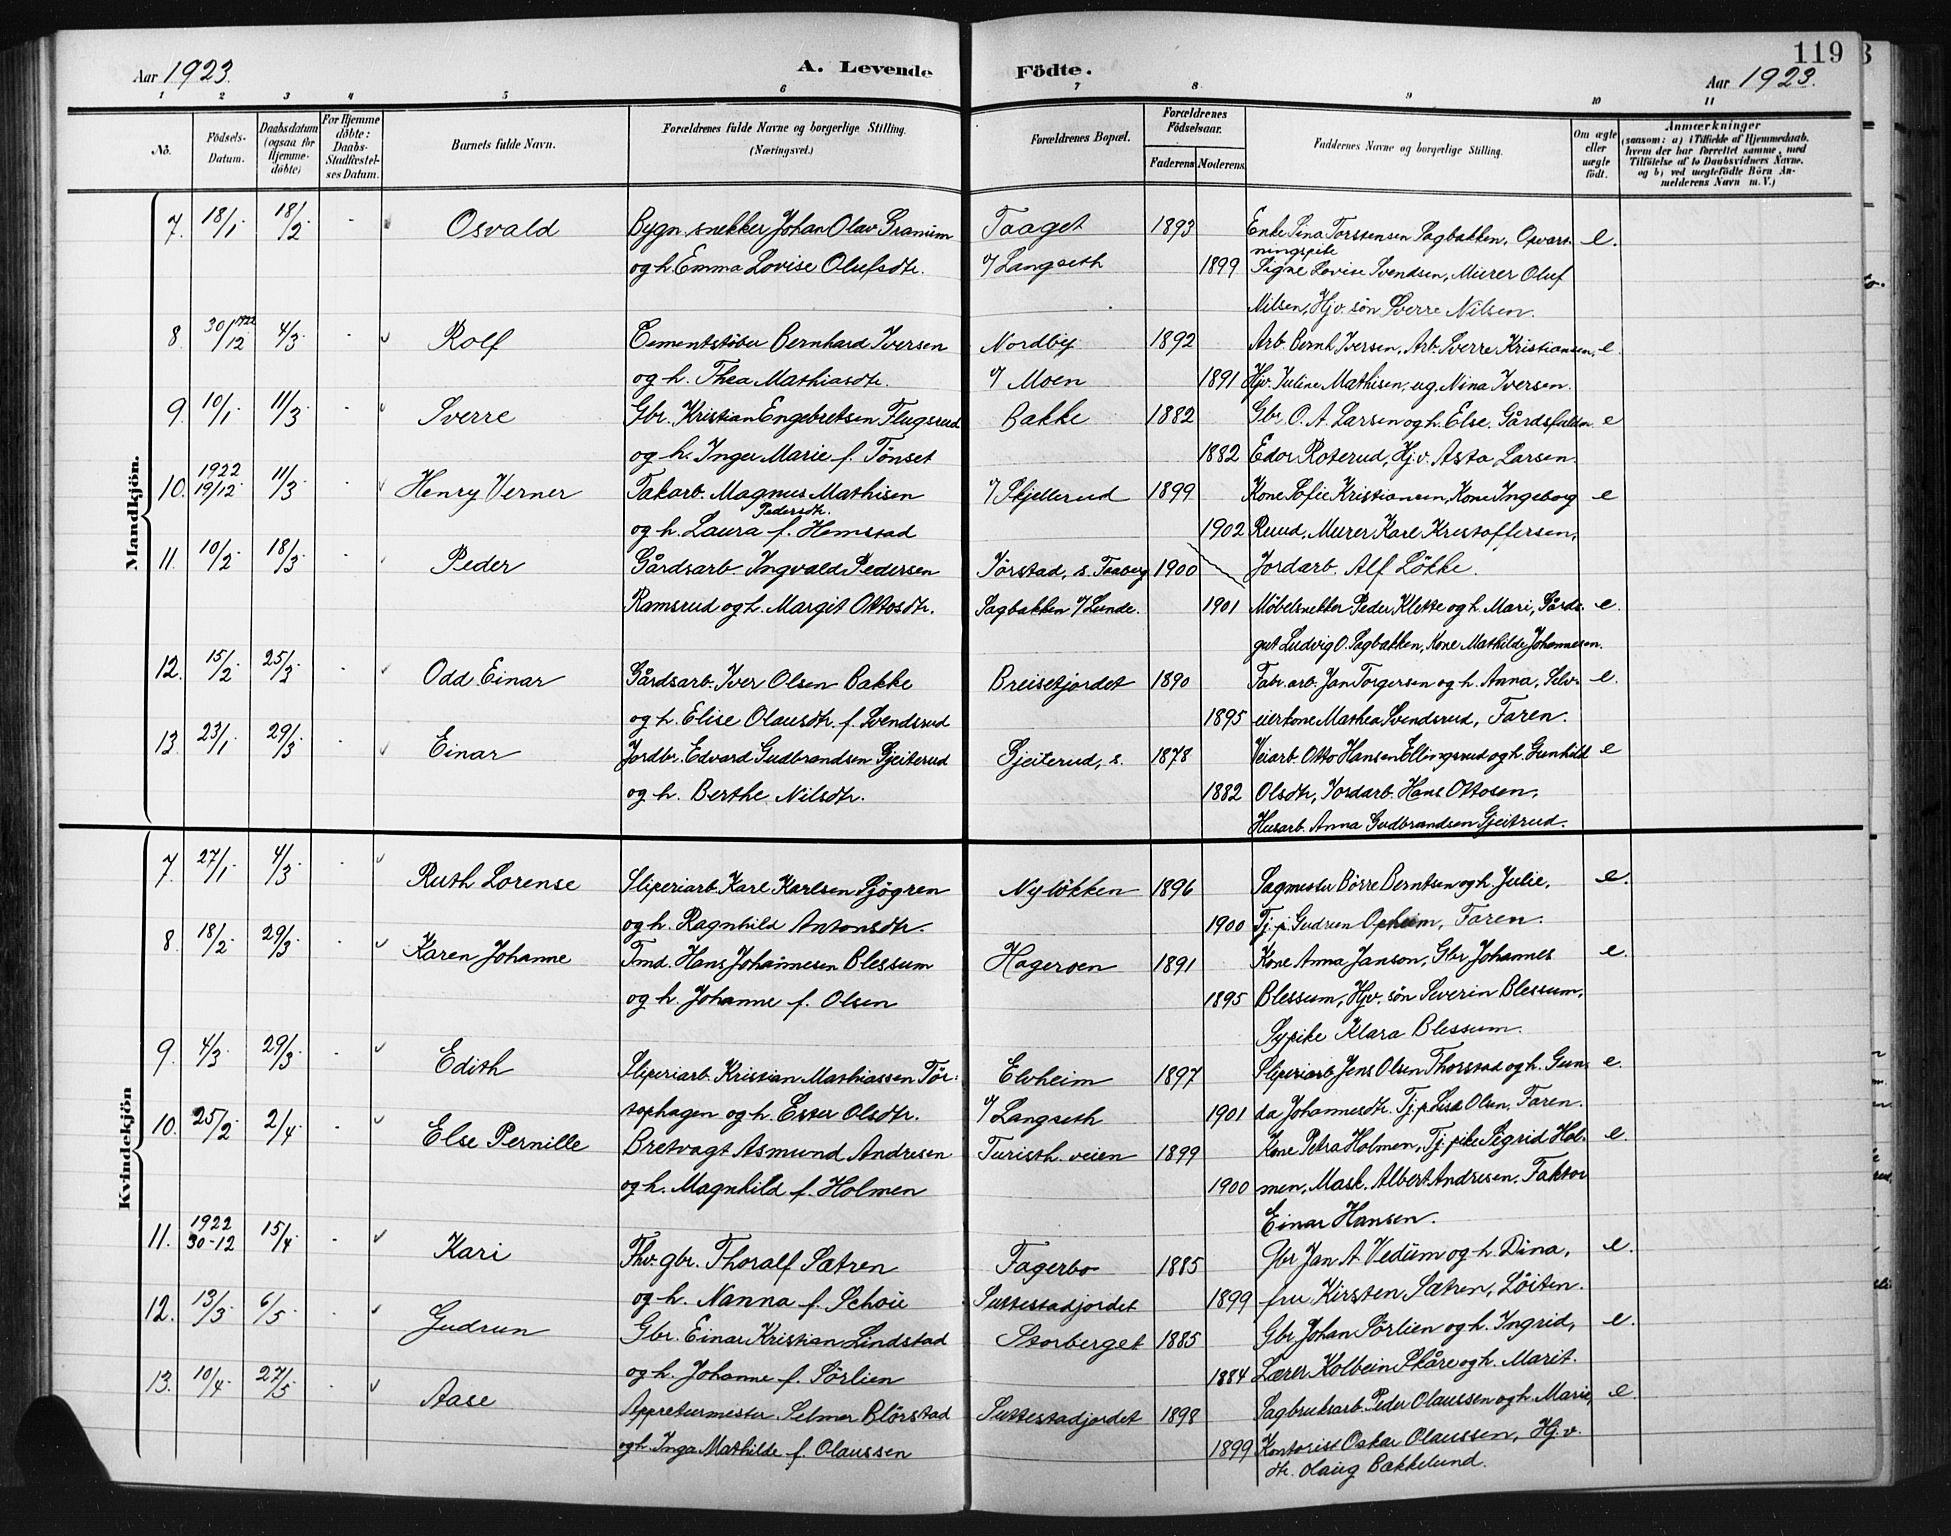 119
Aar 1923.
A. Levende Födte.
Aar 1923.
1 2 3 4 5 6 7 8 9 10 11
No. Födsels-Datum. Daabsdatum (ogsaa for Hjemme-döbte) For Hjemme döbte: Daabs-Stadfæstel-ses Datum. Barnets fulde Navn. Forældrenes fulde Navne og borgerlige Stilling. (Næringsvei.) Forældrenes Bopæl. Forældrenes Födselsaar. Faderens Moderens Faddernes Navne og borgerlige Stilling. Om ægte eller uægte födt. Anmærkninger (saasom: a) i Tilfælde af Hjemmedaab, hvem der har forrettet samme, med Tilföielse af to Daabsvidners Navne. og b) ved uægtefödte Börn An-melderens Navn m. V.)
Mandkjön.
7. 18/1 18/2 - Osvald Bygn.snekker Johan Olav Granum Taaget 1893 Enke Sina Torstensen Sagbakken, Opvart- e.
ningspike
og h. Emma Lovise Olufsdtr. v/ Langseth 1899 Signe Lovise Svendsen, Murer Oluf
Nilsen, Hjv. søn Sverre Nilsen.
8. 30/12 1922 4/3 - Rolf Cementstøber Bernhard Iversen Nordby 1892 Arb. Bernh. Iversen, Arb. Sverre Kristiansen, e.
og h. Thea Mathiasdtr. v/ Moen 1891 Hjv. Juline Mathisen, ug. Nina Iversen.
9. 10/1 11/3 - Sverre Gbr. Kristian Engebretsen Flugsrud Bakke 1882 Gbr. O. A. Larsen og h. Else. Gårdsfuldm. e
og h. Inger Marie f. Tønset 1882 Edor Roterud, Hj.v. Asta Larsen.
10. 1922 19/12 11/3 - Henry Verner Fakarb. Magnus Mathisen v/ Skjellerud 1899 Kone Sofie Kristiansen, Kone Ingeborg e
Pedersdtr.
og h. Laura f. Hemstad 1902 Ruud, Murer Karl Kristoffersen,
11. 10/2 18/3 - Peder Gårdsarb. Ingvald Pedersen Jørstad, s. Faaberg 1900 Jordarb. Alf Løkke.
Ramsrud og h. Margit Ottosdtr. Sagbakken v/ Lunde. 1901 Møbelsnekker Peder Klette og h. Mari, Gårds- e.
gut Ludvig O. Sagbakken, Kone Mathilde Johannesen.
12. 15/2 25/3 - Odd Einar Gårdsarb. Iver Olsen Bakke Breisetjordet 1890 Fabr.arb. Jan Torgersen og h. Anna, Selv- e.
og h. Elise Olausdtr. f. Svendsrud 1895 eierkone Mathea Svendsrud, Faren.
13. 23/1 29/3 - Einar Jordbr. Edvard Gudbrandsen Gjeiterud Gjeiterud, s. 1878 Veiarb. Otto Hansen Ellingsrud og h. Gunhild e
og h. Berthe Nilsdtr. 1882 Olsdtr, Jordarb. Hans Ottosen,
Husarb. Anna Gudbrandsen Gjeitrud.
Kvindekjön
7. 27/1 4/3 - Ruth Lorense Sliperiarb. Karl Karlsen Sjögren Nyløkken 1896 Sagmester Börre Berntsen og h. Julie, e.
og h. Ragnhild Antonsdtr. 1900 Tj.p. Gudrun Opheim, Faren.
8. 18/2 29/3 - Karen Johanne Tmd. Hans Johannesen Blessum Hageroen 1891 Kone Anna Janson, Gbr. Johannes e.
og h. Johanne f. Olsen 1895 Blessum, Hjv. søn Severin Blessum,
Sypike Klara Blessum.
9. 4/3 29/3 - Edith Sliperiarb. Kristian Mathiassen Tör- Elvheim 1897 Sliperiarb. Jens Olsen Thorstad og h. Gun- e.
stophagen og h. Ester Olsdtr. v/ Langseth 1901 da Johannesdtr. Tj.p. Olsen, Faren.
10. 25/2 2/4 - Else Pernille Bretvagt Asmund Andresen Turisth. veien 1899 Kone Petra Holmen, Tj.pike Sigrid Hol- e.
og h. Magnhild f. Holmen 1900 men, Mask. Albert Andresen, Faktor
Einar Hansen.
11. 1922 30-12 15/4 - Kari Thv. gbr. Thoralf Sætren Fagerbo 1885 Gbr Jan A. Vedum og h. Dina, e.
og h. Nanna f. Schou Suttestadjordet 1899 fru Kirsten Sætren, Löiten.
12. 13/3 6/5 - Gudrun Gbr. Einar Kristian Lindstad Storberget 1885 Gbr Johan Sörlien og h. Ingrid, e.
og h. Johanne f. Sörlien 1884 Lærer Kolbein Skåre og h. Marit.
13. 10/4 27/5 - Aase Appreturmester Selmer Blörstad Suttestadjordet 1898 Sagbruksarb. Peder Olaussen og h. Marie, e.
og h. Inga Mathilde f. Olaussen 1899 Kontorist Oskar Olaussen, Hj.v.
dtr. Olaug Bækkelund.